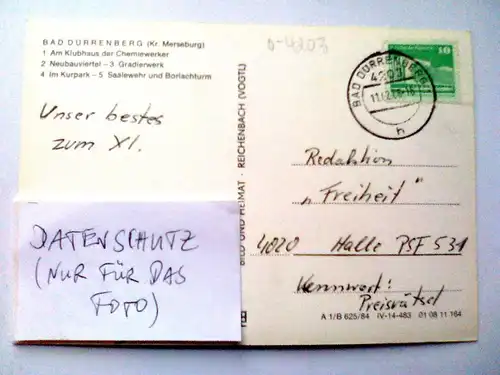 BAD DÜRRENBERG (Kr. Merseburg)
1 Am Klubhaus der Chemiewerker
2 Neubauviertel – 3 Gradierwerk
4 Im Kurpark – 5 Saalewehr und Borlachturm
Unser bestes
zum XI.
DATENSCHUTZ
(NUR FÜR DAS
FOTO)
BILD UND HEIMAT · REICHENBACH (VOGTL)
0-4203
10
BAD DÜRRENBERG
4203
h
Redaktion
"Freiheit"
4020 Halle PSF 531
Kennwort:
Preisrätsel
A 1/B 625/84 IV-14-483 01 08 11 164